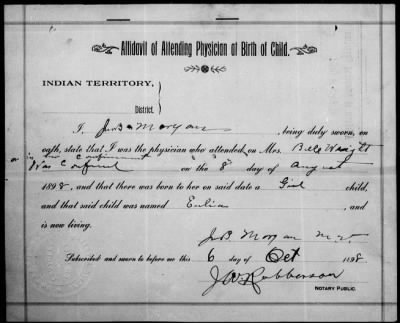 Affidavit of Attending Physician at Birth of Child.
INDIAN TERRITORY,
District.
I, J B Morgan, being duly sworn, on
oath, state that I was the physician who attended on Mrs. Bell Wright
in her Confinement
Was Confined on the 8" day of August
1898, and that there was born to her on said date a Girl child,
and that said child was named Eulia, and
is now living.
J B Morgan M.D.
Subscribed and sworn to before me this 6 day of Oct 1898.
J W Robberson
NOTARY PUBLIC.